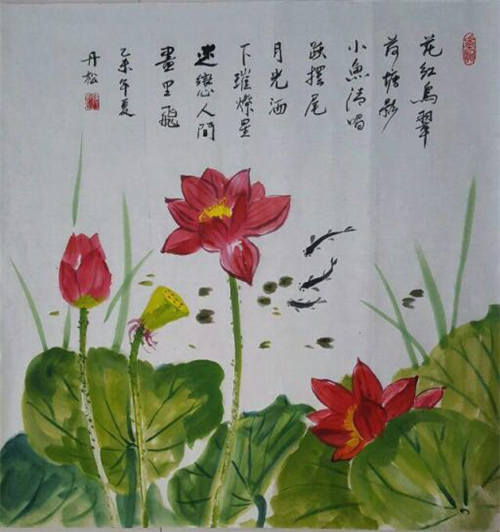 花红鸟翠
荷塘影
小鱼清唱
跃摆尾
月光洒
下璀燦星
迷戀人間
畫里飛
乙未年夏
丹松